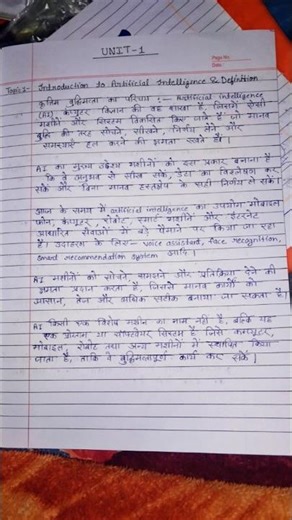 UNIT-1
Page No.
Date
Topic 1- Introduction to Artificial Intelligence & Definition
कृत्रिम बुद्धिमत्ता का परिचय :- Artificial intelligence
(AI) कंप्यूटर विज्ञान की वह शाखा है जिसमें ऐसी
मशीनें और सिस्टम विकसित किए जाते हैं जो मानव
बुद्धि की तरह सोचने, सीखने, निर्णय लेने और
समस्याएँ हल करने की क्षमता रखते हों।
AI का मुख्य उद्देश्य मशीनों को इस प्रकार बनाना है
कि वे अनुभव से सीख सकें, डेटा का विश्लेषण कर
सकें और बिना मानव हस्तक्षेप के सही निर्णय ले सकें।
आज के समय में artificial intelligence का उपयोग मोबाइल
फोन, कंप्यूटर, रोबोट, स्मार्ट मशीनों और इंटरनेट
आधारित सेवाओं में बड़े पैमाने पर किया जा रहा
है। उदाहरण के लिए- voice assistant, face recognition,
smart recommendation system आदि।
AI मशीनों को सोचने समझने और प्रतिक्रिया देने की
क्षमता प्रदान करता है, जिससे मानव कार्यों को
आसान, तेज और अधिक सटीक बनाया जा सकता है।
AI किसी एक विशेष मशीन का नाम नहीं है, बल्कि यह
एक प्रोग्राम या सॉफ्टवेयर सिस्टम है जिसे कंप्यूटर,
मोबाइल, रोबोट तथा अन्य मशीनों में स्थापित किया
जाता है, ताकि वे बुद्धिमत्तापूर्ण कार्य कर सकें।